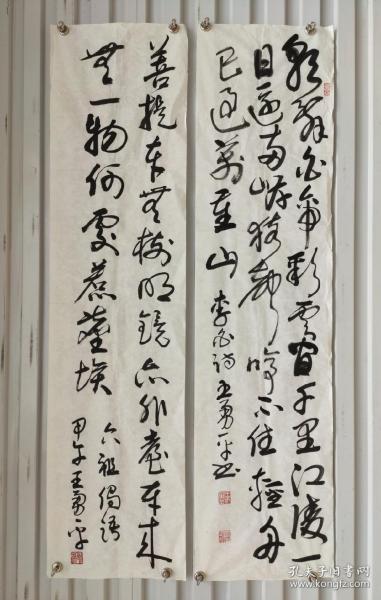 朝辞白帝彩云间千里江陵一
日还两岸猿声啼不住轻舟
已过万重山 李白诗 王勇平书
菩提本无树明镜亦非台本来
无一物何处惹尘埃
六祖偈语
甲午王勇平
孔夫子旧书网